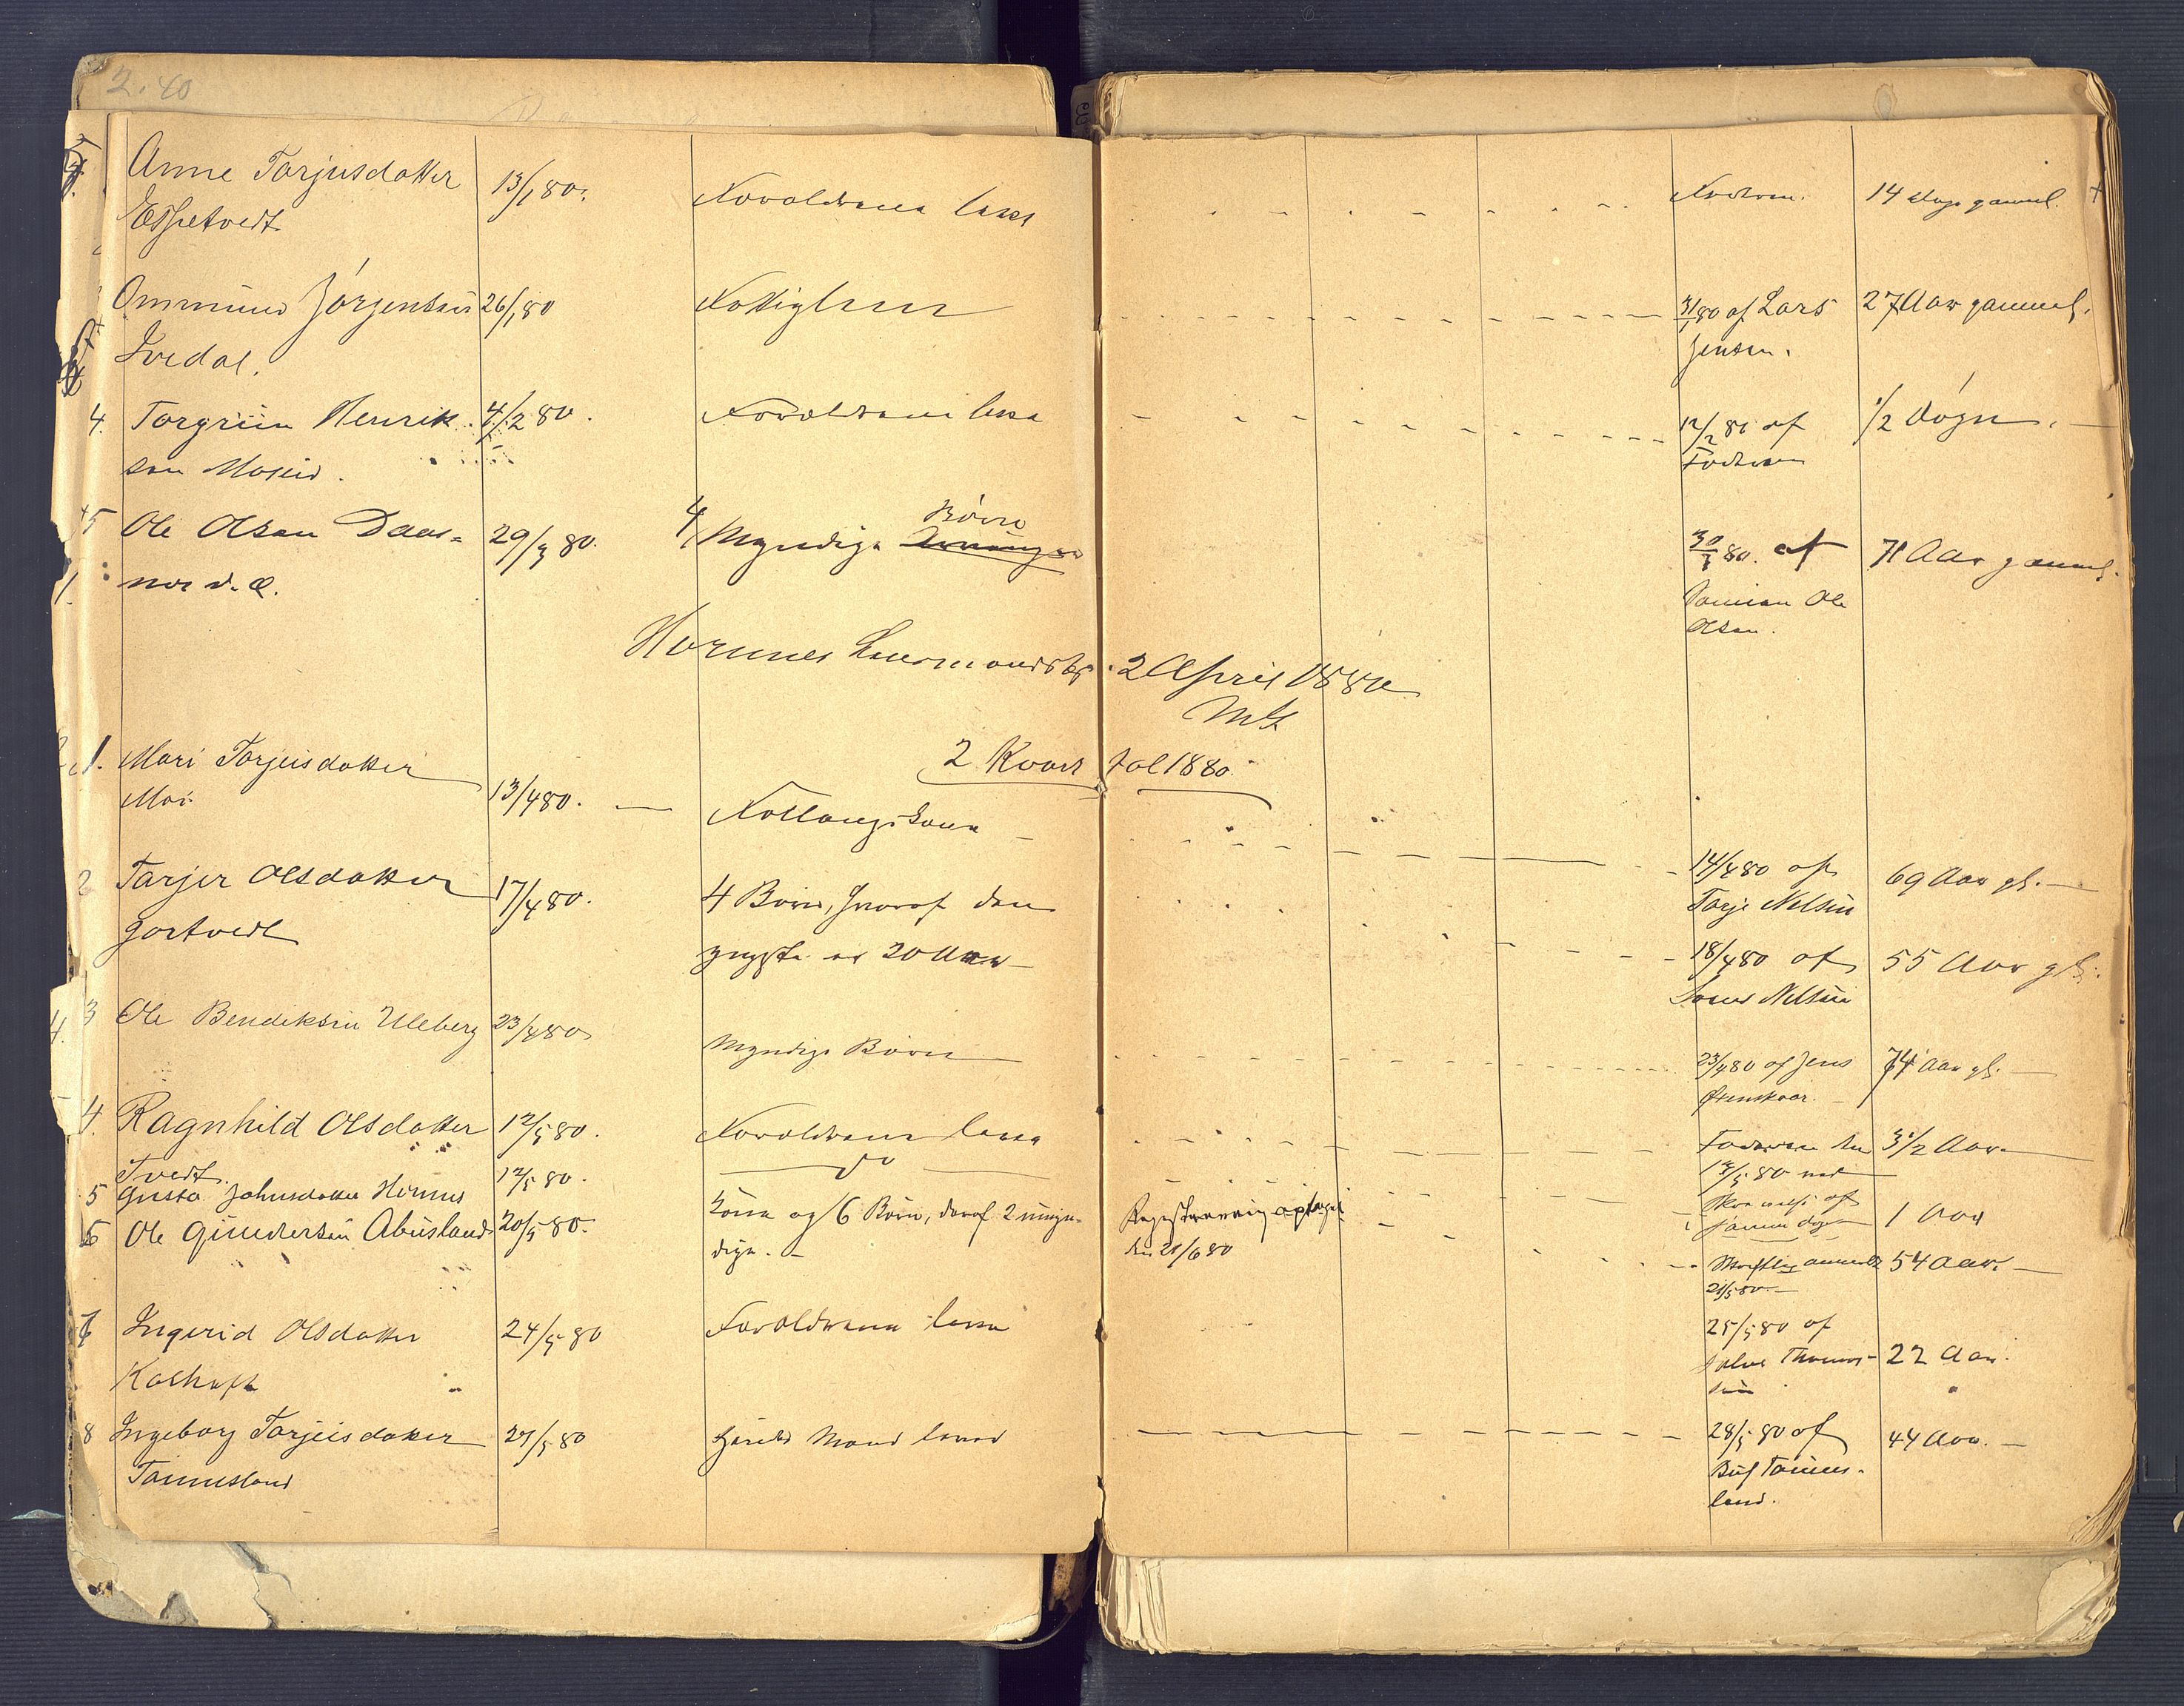 2.40
Anne Torjusdatter 13/1 80. Forældrene leve Faderen. 14 Dage gammel. +
Espetvedt
Ommund Jörgensen 26/1 80 Fattiglem 31/1 80 af Lars 27 Aar gammel.
Ivedal. Jensen.
4. Torgrim Henrik- 4/2 80. Forældrene leve 12/2 80 af 1/2 Døgn.
sen Moseid. Faderen
5 Ole Olsen Daas- 29/3 80. 4 Myndige Börn 30/3 80. af 71 Aar gammel.
nes d.Æ. Sønnen Ole
Olsen.
Hornnes Lensmandsbg. 2 April 1880
2 Kvartal 1880
1. Mari Torjusdatter 13/4 80. Føllaugskone 14/4 80 af 69 Aar gl.
Moi Torje Nilsen
2 Torjer Olsdatter 17/4 80. 4 Börn, hvoraf den 18/4 80 af 55 Aar gl.
Gortvedt yngste er 20 Aar Nilsen
3 Ole Bendiksen Uleberg 23/4 80 Myndige Börn 23/4 80 af Jens 74 Aar gl.
4. Ragnhild Olsdatter 12/5 80. Forældrene leve Faderen den 3 1/2 Aar
Tvedt. 13/5 80 ved
5 Gusta Johnsdatter Hornes 12/5 80. do af samme dag 1 Aar
6 Ole Gundersen Abusland 20/5 80. Kone og 6 Börn, deraf 2 umyn- Registrering optaget Skriftlig anmeldt 54 Aar.
dige. den 21/6 80 21/5 80.
7 Ingerid Olsdatter 24/5 80 Forældrene leve 25/5 80 af 22 Aar.
Salve Thomas-
sen
8 Ingeborg Torjusdatter 27/5 80 Hendes Mand lever 28/5 80 af 44 Aar.
Tønnesland Tønnes-
land.